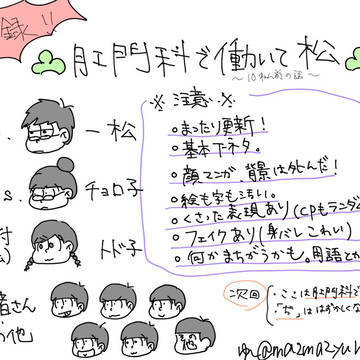 録!!
肛門科で働いて 松
〜10ねん前の話〜
※ 注意 ※
。まったり更新!
。基本下ネタ。
。顔マンガ 背景は外んだ!
。絵も字も汚い。
。くさった表現あり(CPもランダム
。フェイクあり(身バレこわい)
。何かまちがうかも。用語とか
一松
s.
チョロ子
付
トド子
者さん
の他
次回
・ここは肛門科で
・「ぢ」ははずかしくな